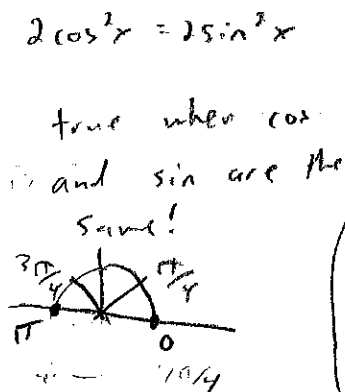 2cos²x = 2sin²x
true when cos
and sin are the
same!
3π/4 π/4
π 0